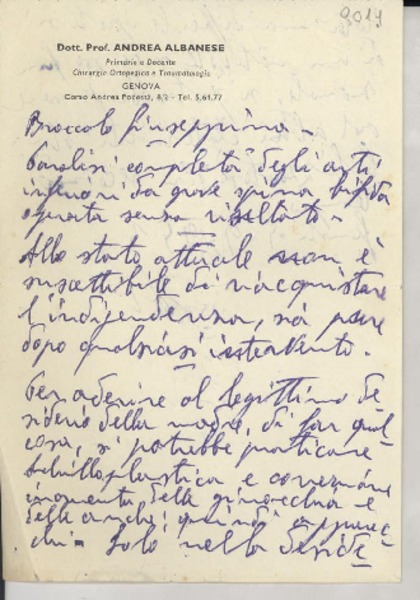 9014
Dott. Prof. ANDREA ALBANESE
Primario e Docente
Chirurgia Ortopedica e Traumatologia
GENOVA
Corso Andrea Podestà, 8/2 - Tel. 5.61.77
Broccolo Giuseppina -
Paralisi completa degli arti
inferiori da grave spina bifida
operata senza risultato -
Allo stato attuale non è
suscettibile di riacquistare
l'indipendenza, sia pure
dopo qualsiasi intervento.
Per aderire al legittimo de
siderio della madre, di far qual
cosa, si potrebbe praticare
Achilloplastica e correzione
incruenta delle ginocchia e
delle anche; quindi apparec
chi - Solo nella deside